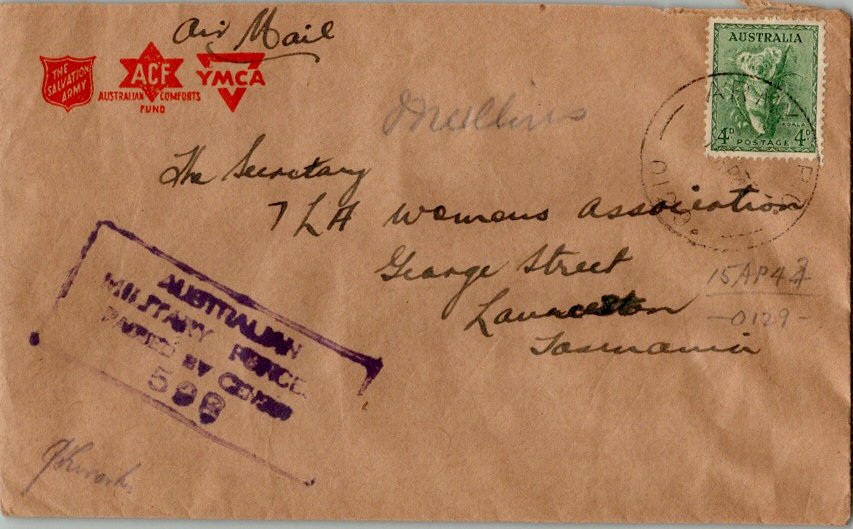 Air Mail
THE
SALVATION
ARMY
ACF
AUSTRALIAN COMFORTS
FUND
YMCA
AUSTRALIA
KOALA
4D 4D
POSTAGE
ARMY P.O.
0129
Mullins
The Secretary
7 LA Womens Association
George Street
Launceston
Tasmania
15 AP 43
-0129-
AUSTRALIAN
MILITARY FORCES
PASSED BY CENSOR
598